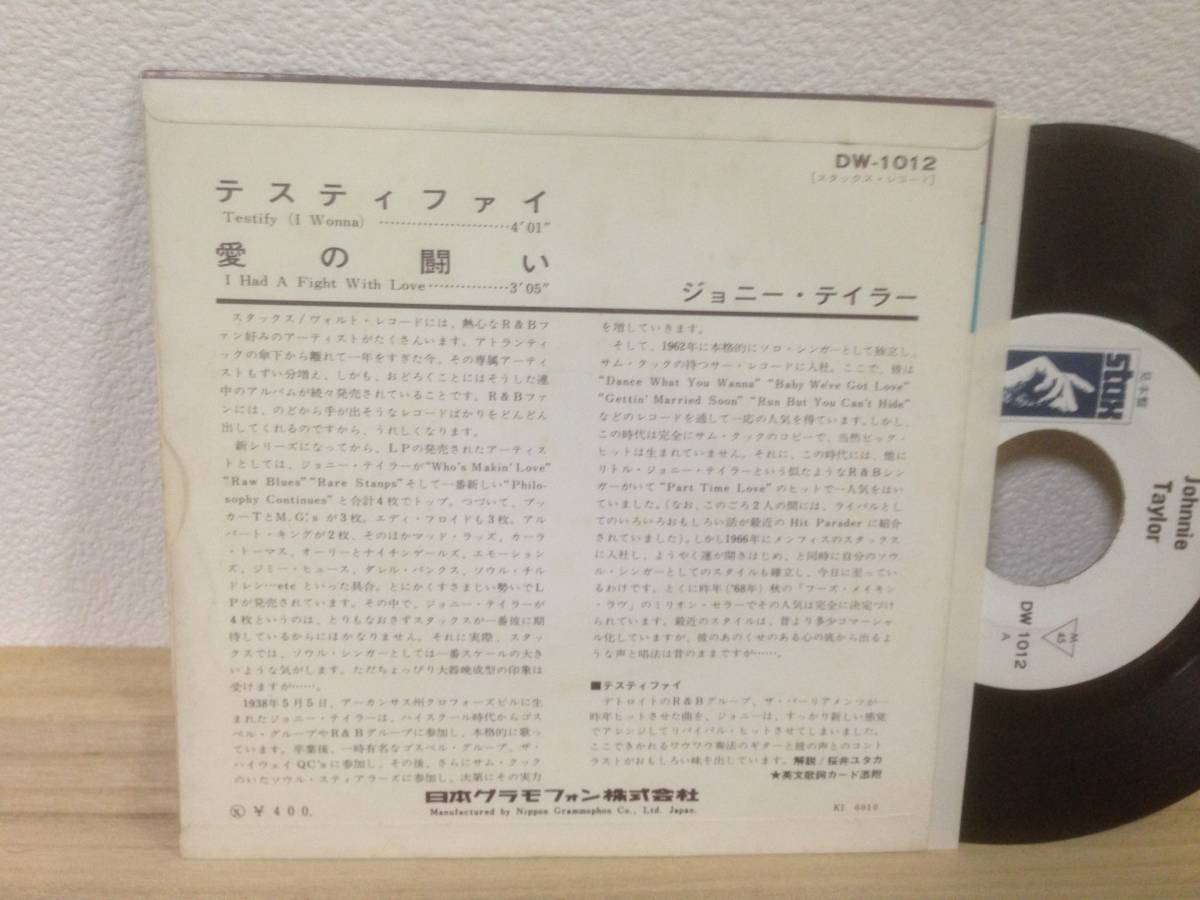 DW-1012
[スタックス・レコード]
テスティファイ
Testify (I Wonna) ························4′01″
愛の闘い
I Had A Fight With Love···············3′05″
ジョニー・テイラー
スタックス/ヴォルト・レコードには、熱心なR&Bフ
ァン好みのアーティストがたくさんいます。アトランティ
ックの傘下から離れて一年をすぎた今、その専属アーティ
ストもずい分増え、しかも、おどろくことにはそうした連
中のアルバムが続々発売されていることです。R&Bファ
ンには、のどから手が出そうなレコードばかりをどんどん
出してくれるのですから、うれしくなります。
新シリーズになってから、LPの発売されたアーティス
トとしては、ジョニー・テイラーが“Who's Makin' Love”
“Raw Blues” “Rare Stanps”そして一番新しい“Philo-
sophy Continues”と合計4枚でトップ。つづいて、ブッ
カーTとM.G.'s が3枚。エディ・フロイドも3枚。アル
バート・キングが2枚、そのほかマッド・ラッズ、カーラ
・トーマス、オーリーとナイチンゲールズ、エモーション
ズ、ジミー・ヒュース、ダレル・バンクス、ソウル・チル
ドレン…etc といった具合。とにかくすさまじい勢いでL
Pが発売されています。その中で、ジョニー・テイラーが
4枚というのは、とりもなおさずスタックスが一番彼に期
待しているからにほかなりません。それに実際、スタッ
クスでは、ソウル・シンガーとしては一番スケールの大き
いような気がします。ただちょっぴり大器晩成型の印象は
受けますが……。
1938年5月5日、アーカンサス州クロフォーズビルに生
まれたジョニー・テイラーは、ハイスクール時代からゴス
ペル・グループやR&Bグループに参加し、本格的に歌っ
ています。卒業後、一時有名なゴスペル・グループ、ザ・
ハイウェイQC'sに参加し、その後、さらにサム・クック
のいたソウル・スティアラーズに参加し、次第にその実力
を増していきます。
そして、1962年に本格的にソロ・シンガーとして独立し、
サム・クックの持つサー・レコードに入社。ここで、彼は
“Dance What You Wanna” “Baby We've Got Love”
“Gettin' Married Soon” “Run But You Can't Hide”
などのレコードを通して一応の人気を得ています。しかし、
この時代は完全にサム・クックのコピーで、当然ビッグ・
ヒットは生まれていません。それに、この時代には、他に
リトル・ジョニー・テイラーという似たようなR&Bシン
ガーがいて“Part Time Love”のヒットで一人気をはい
ていました。(なお、このごろ2人の間には、ライバルとし
てのいろいろおもしろい話が最近の Hit Parader に紹介
されていました)。しかし1966年にメンフィスのスタックス
に入社し、ようやく運が開きはじめ、と同時に自分のソウ
ル・シンガーとしてのスタイルも確立し、今日に至ってい
るわけです。とくに昨年('68年)秋の「フーズ・メイキン
・ラヴ」のミリオン・セラーでその人気は完全に決定づけ
られています。最近のスタイルは、昔より多少コマーシャ
ル化していますが、彼のあのくせのある心の底から出るよ
うな声と唱法は昔のままですが……。
■テスティファイ
デトロイトのR&Bグループ、ザ・パーリアメンツが一
昨年ヒットさせた曲を、ジョニーは、すっかり新しい感覚
でアレンジしてリバイバル・ヒットさせてしまいました。
ここできかれるワウワウ奏法のギターと彼の声とのコント
ラストがおもしろい味を出しています。解説/桜井ユタカ
★英文歌詞カード添附
Ⓚ ¥400.
日本グラモフォン株式会社
Manufactured by Nippon Grammophon Co., Ltd. Japan.
KI 6910
stax
見本盤
Johnnie
Taylor
DW 1012
A
M
45